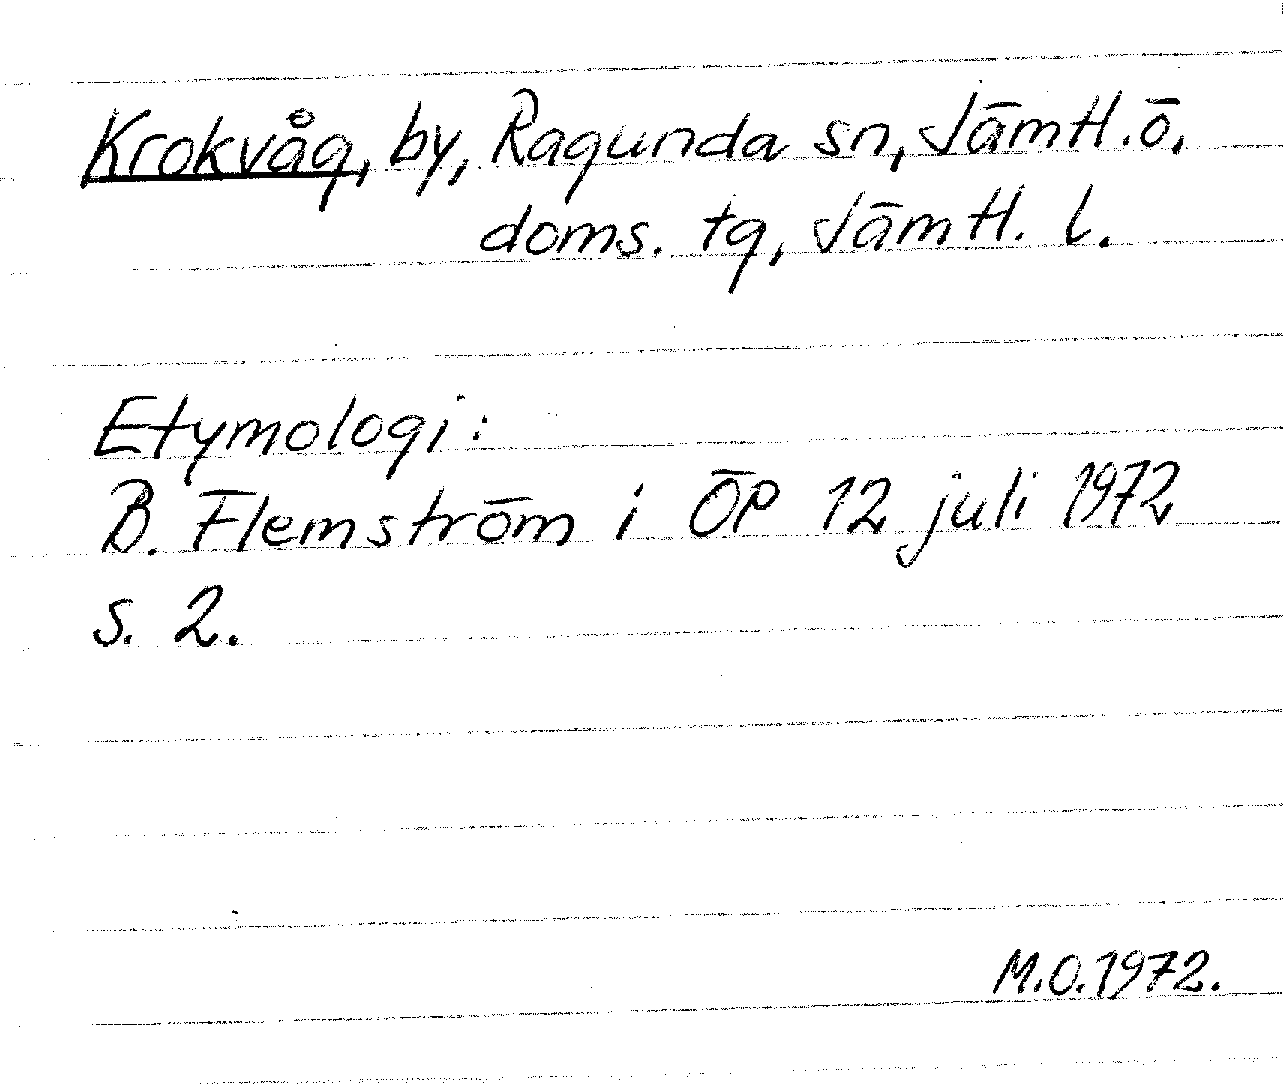 Krokvåg, by, Ragunda sn, Jämtl. ö.
doms. tg, Jämtl. l.
Etymologi:
B. Flemström i ÖP 12 juli 1972
s. 2.
M.O. 1972.